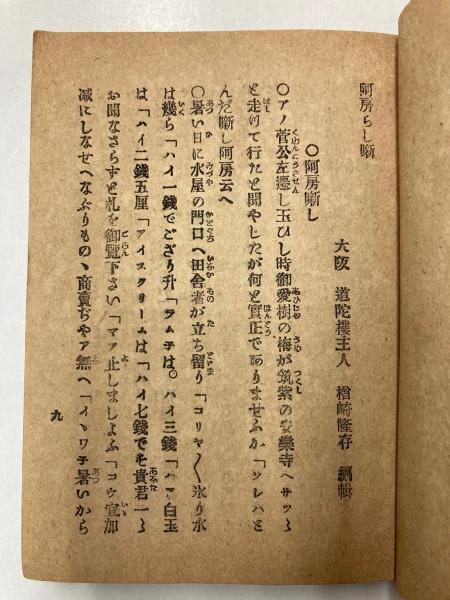 阿房らし噺
大阪 道陀樸主人 楢崎隆存 編輯
〇阿房噺し
〇アノ菅公左遷し玉ひし時御愛樹の梅が筑紫の安樂寺へサッ〳〵
と走けて行たと聞やしたが何と實正でありませふか「ソレハと
んだ噺し阿房云へ
〇暑い日に水屋の門口へ田舎者が立ち留り「コリャ〳〵氷り水
は幾ら「ハイ一錢でござり升「ラムチは。ハイ三錢「ハ、白玉
は「ハイ二錢五厘「アイスクリームは「ハイ七錢でそ貴君一々
お聞なさらずと札を御覽下さい「マア止しましよふ「コウ宜加
减にしなせへなぶりもの、商賣ぢやア無へ「イ、ワチ暑いから
九